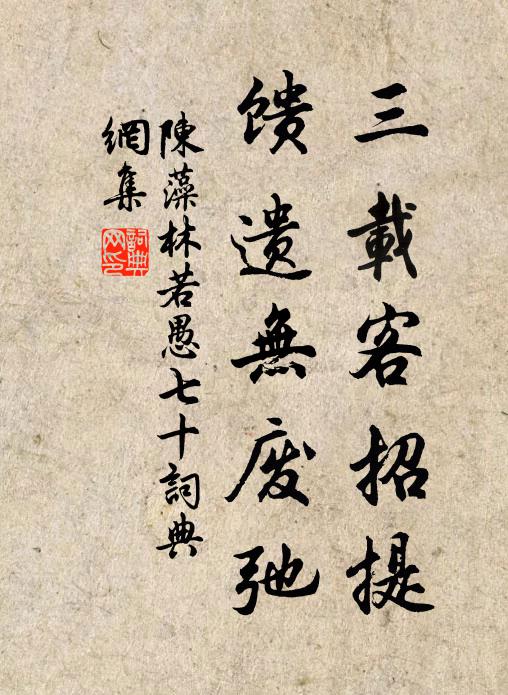 三載客招提
馈遗無废弛
陳藻林若愚七十詞典
網集
詞典
网印